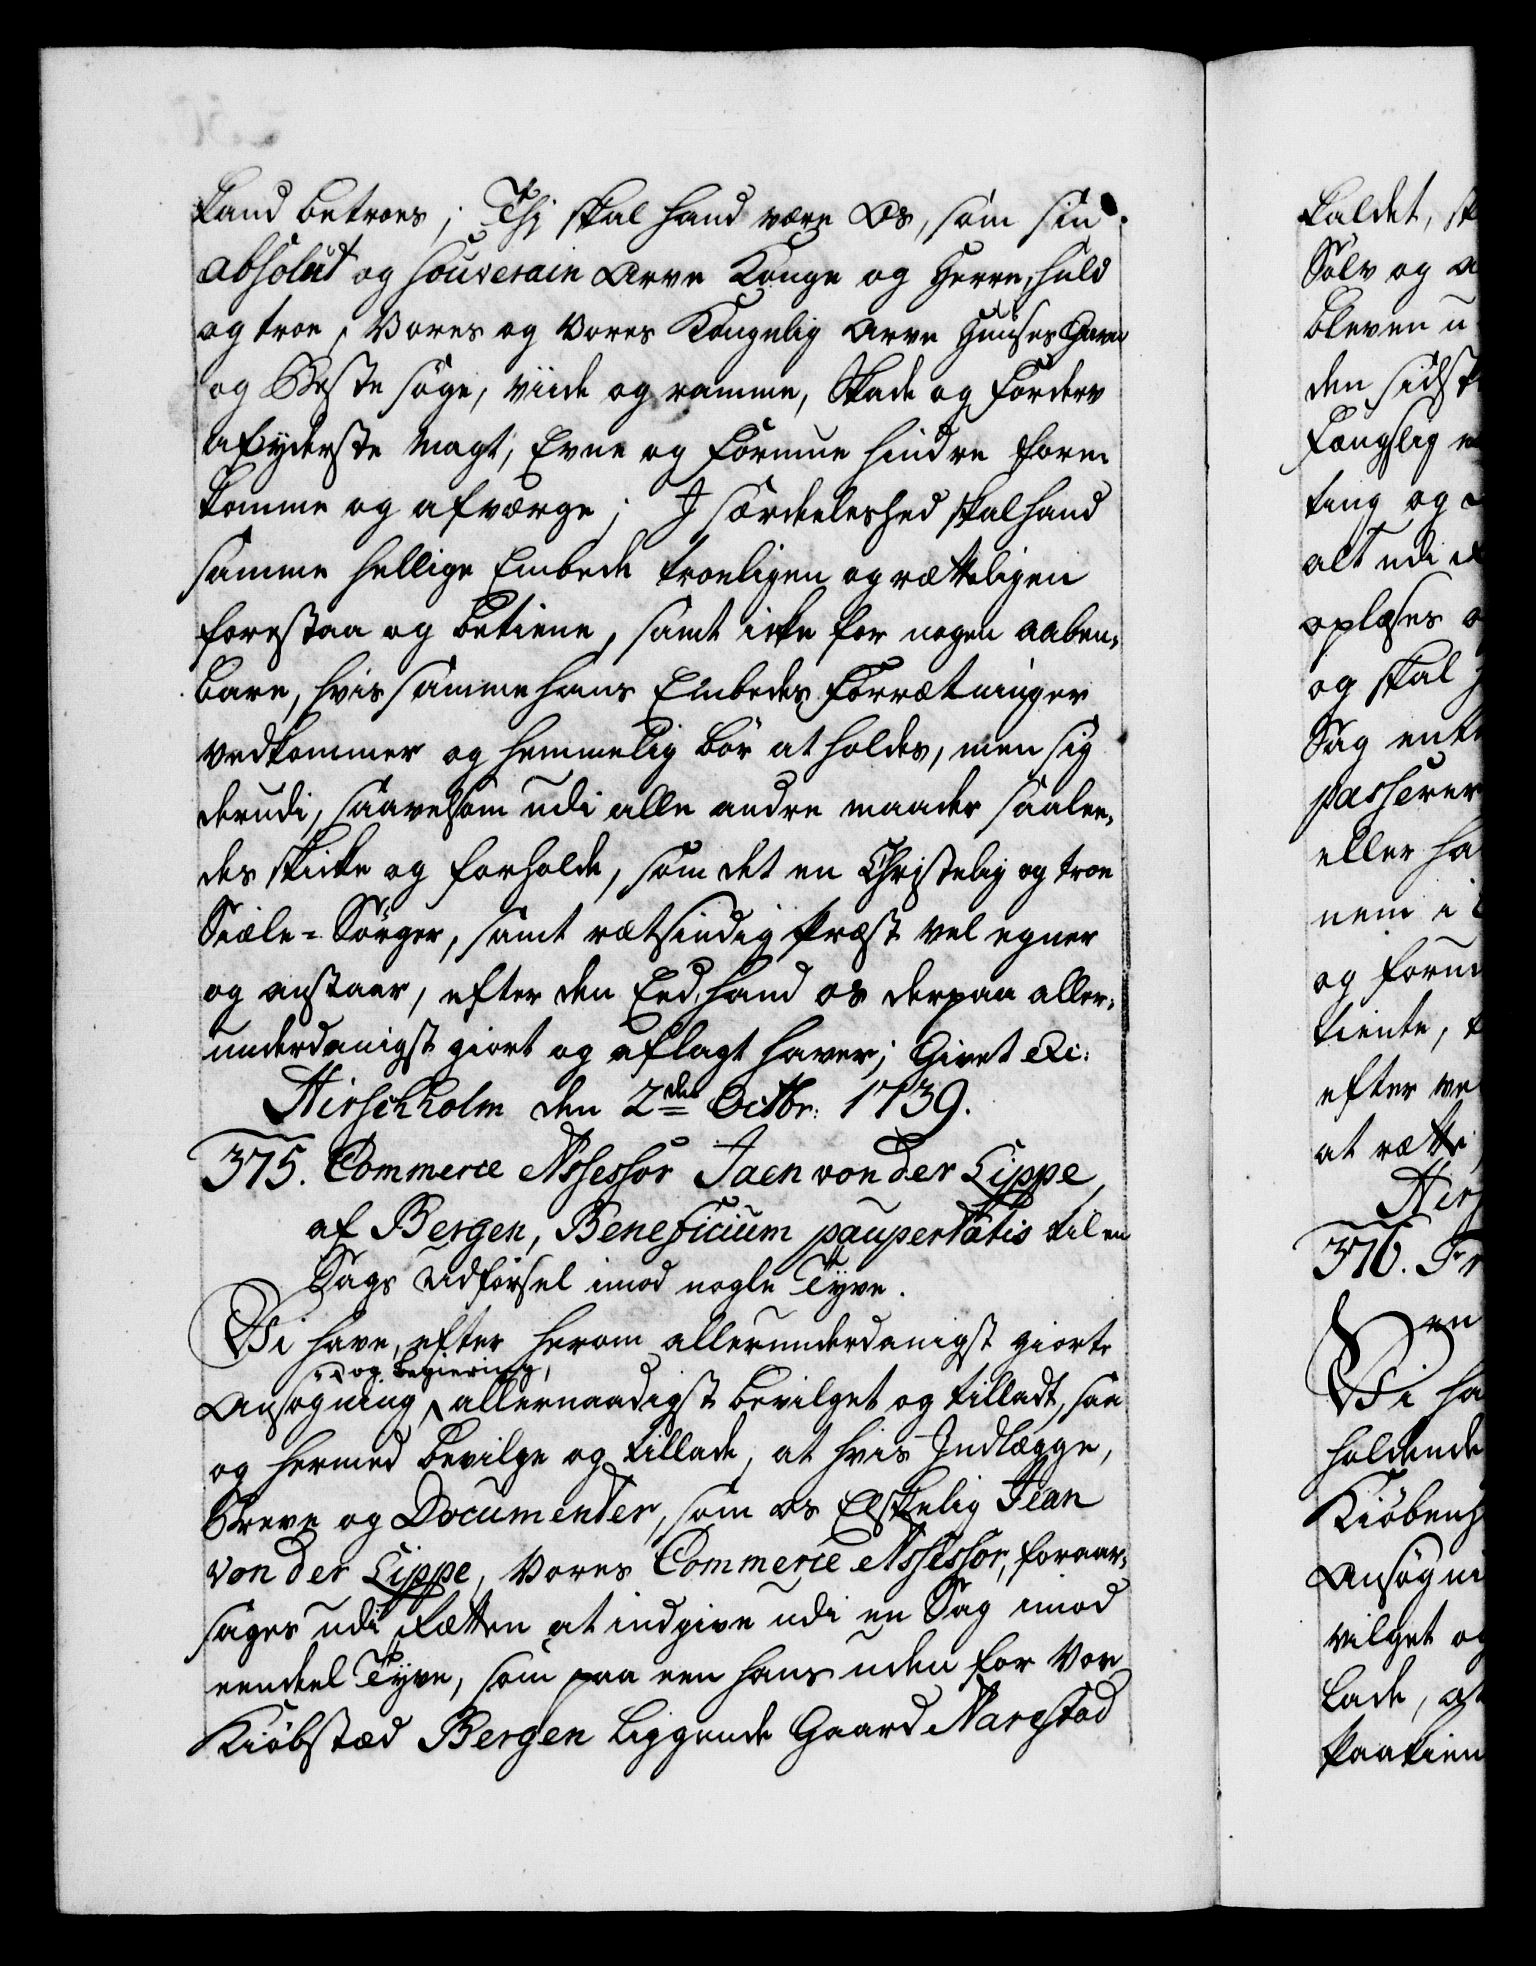 kand betroes; Thj skal hand være Os, som sin
absolut og souverain Arve Konge og Herre, huld
og troe, Vores og Vores Kongelig Arve Huuses Gavn
og Beste søge, viide og ramme, Skade og Forderv
af yderste Magt, Evne og Formue hindre fore
komme og afværge; I særdeeleshed skal hand
samme hellige Embede troeligen og rætteligen
forestaa og betiene, samt icke for nogen aaben-
bare, hvis samme hans Embedes Forrætninger
vedkommer og hemmelig bør at holdes, men sig
derudi, saavelsom udi alle andre maader saale-
des skicke og forholde, som det en Christelig og troe
Siæle-Sørger, samt rætsindig Præst vel egner
og anstaar, efter den Eed, hand os derpaa aller-
underdanigst giort og aflagt haver; Givet &c:
Hirschholm den 2den Octbr: 1739.
375. Commerce Assessor Jaen von der Lippe,
af Bergen, Beneficium paupertatis til en
Sags Udførsel imod nogle Tyve.
Vi have, efter herom allerunderdanigst giorte
og begiering,
Ansøgning allernaadigst bevilget og tilladt, saa
og hermed bevilge og tillade, at hvis Indlægge,
Breve og Documenter, som os Elskelig Jean
von der Lippe, Vores Commerce Assessor, foraar-
sages udi Rætten at indgive udi en Sag imod
eendeel Tyve, som paa een hans uden for Vor
Kiøbstæd Bergen liggende Gaard Narestad
kaldet, sk
Sølv og a
bleven u
den sidst
Fængslig
ting og
alt udi
oplæses
og skal
Sag entt
passerer
eller ha
nem i
og form
tiente,
efter ve
at rætte
Hirs
376. Fr
en
Vi ha
holdende
Kiøbenh
Ansøgni
vilget og
lade, at
paatien